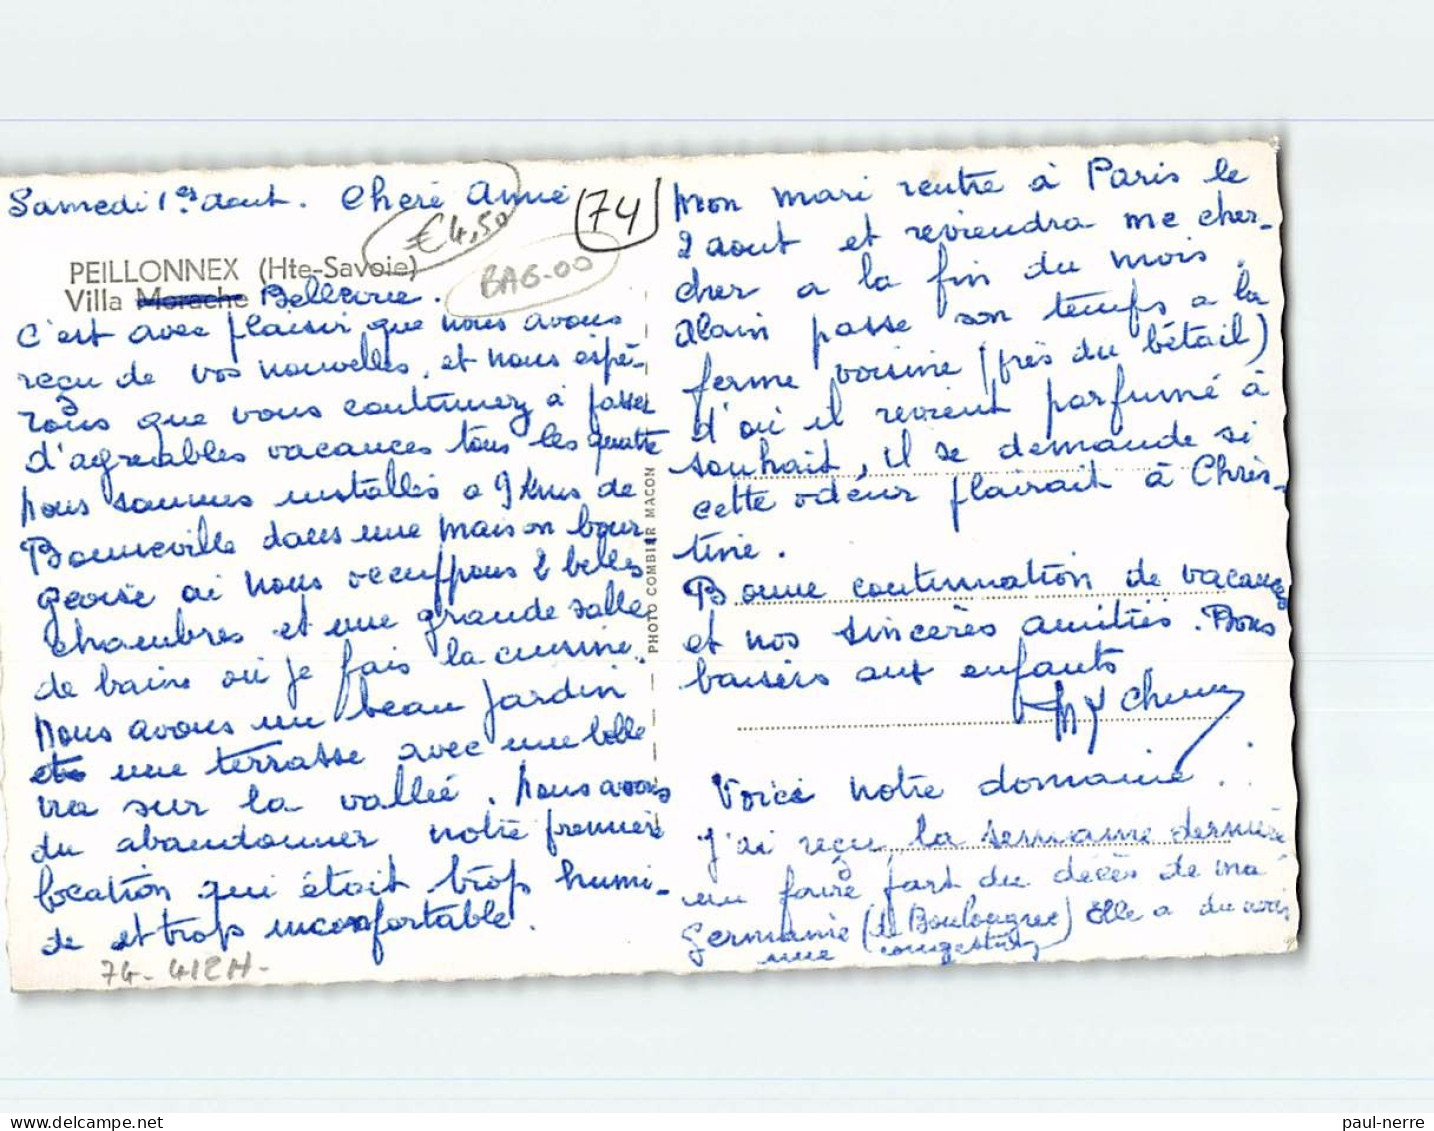 Samedi 1er aout. Chère Annie
€4,50
74
BAG-00
PEILLONNEX (Hte-Savoie)
Villa Morache Bellevue.
C'est avec plaisir que nous avons
reçu de vos nouvelles, et nous espé-
rons que vous continuez à passer
d'agréables vacances tous les quatre
nous sommes installés a 9 kms de
Bonneville dans une maison bour
geoise où nous occuppons 2 belles
chambres et une grande salle
de bains où je fais la cuisine.
Nous avons un beau jardin
et une terrasse avec une belle
vue sur la vallée. Nous avons
du abandonner notre première
location qui était trop humi-
de et trop inconfortable.
74-412H-
PHOTO COMBIER MACON
Mon mari rentre à Paris le
2 aout et reviendra me cher-
cher a la fin du mois.
Alain passe son temps a la
ferme voisine (près du bétail)
d'où il revient parfumé à
souhait, il se demande si
cette odeur plairait à Chris-
tine.
Bonne continuation de vacances
et nos sincères amitiés. Bons
baisers aux enfants
Voici notre domaine.
J'ai reçu la semaine dernière
un faire part du décès de
Germaine (de Boulogne) Elle a du avoir
une congestion
paul-nerre